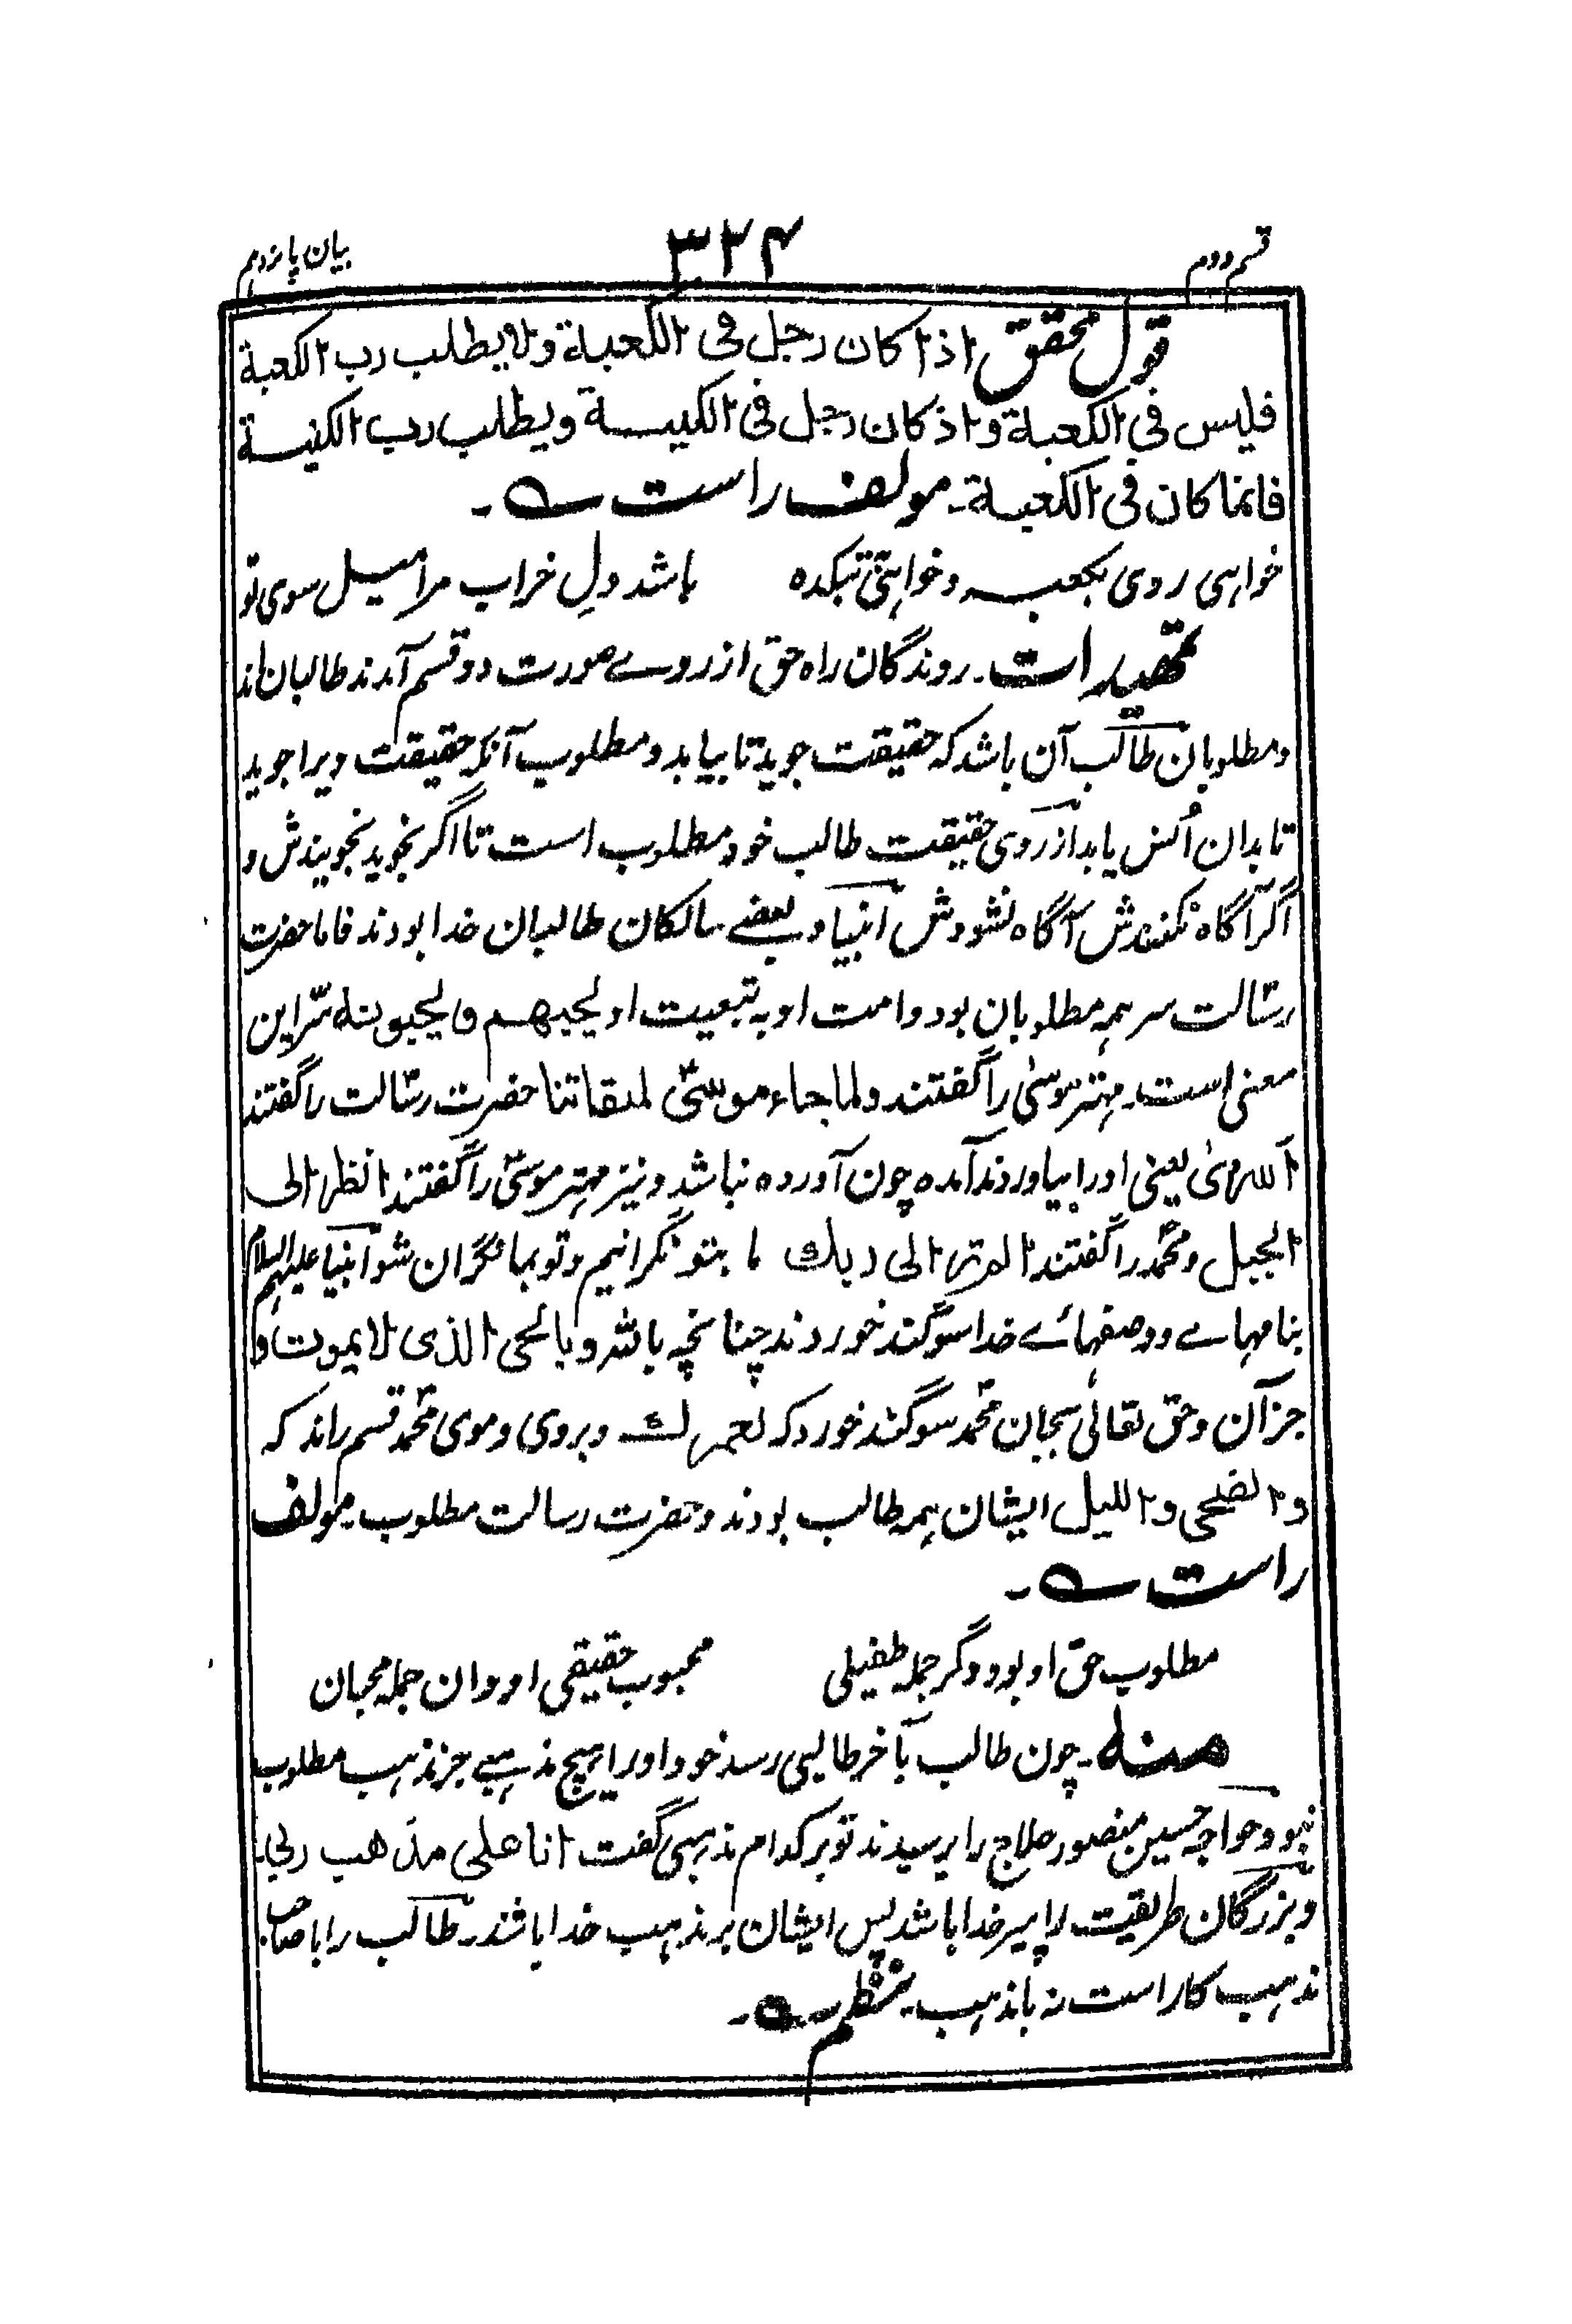 قسم دوم ۳۲۴ بیان پانزدہم
قول محقق اذا کان رجل فی الکعبة ولا یطلب رب الکعبة
فلیس فی الکعبة واذ کان رجل فی الکنیسة ویطلب رب الکنیسة
فانما کان فی الکعبة۔ مولف راست ؎ ۔
خواہی روی بکعبہ وخواہی بتبکدہ باشد دل خراب مرا میل سوی تو
تمہیدات۔ روندگان راہ حق از روے صورت دو قسم آمدند طالبان اند
ومطلوبان طالب آن باشد کہ حقیقت جوید تا بیابد ومطلوب آنکہ حقیقت ویرا جوید
تا بدان اُنس یابد از روی حقیقت طالب خود مطلوب است تا اگر نجوید نجویندش و
اگر آگاہ نکنندش آگاہ نشودش انبیا وبعضے سالکان طالبان خدا بودند فاما حضرت
رسالت سر ہمہ مطلوبان بود وامت او بہ تبعیت او یحبهم ویحبونه سّر این
معنی است۔ مہتر موسیٰ را گفتند ولما جاء موسیٰ لمیقاتنا حضرت رسالت را گفتند
اسریٰ یعنی اورا بیاوردند آمدہ چون آوردہ نباشد ونیز مہتر موسیٰ را گفتند انظر الی
الجبل ومحمدؐ را گفتند الم تر الی ربك ما بتو نگرانیم وتو بما نگران شو انبیا علیہم السلام
بنامہاے ووصفہائے خدا سوگند خوردند چنانچہ باللہ وبالحی الذی لا یموت و
جز آن وحق تعالیٰ بجان محمدؐ سوگند خورد کہ لعمرك وبروی وموی محمدؐ قسم راند کہ
والضحی واللیل ایشان ہمہ طالب بودند وحضرت رسالت مطلوب۔ مولف
راست ؎ ۔
مطلوب حق او بود ودگر جملہ طفیلی محبوب حقیقی او وان جملہ محبان
منه۔ چون طالب بآخر طالبی رسد خود اورا ہیچ مذہبے جز مذہب مطلوب
نبود خواجہ حسین منصور حلاج را پرسیدند تو بر کدام مذہبی گفت انا علی مذهب ربی۔
وبزرگان طریقت را پیر خدا باشد پس ایشان بر مذہب خدا باشند۔ طالب را با صاحب
مذہب کار است نہ با مذہب۔ نظم ؎ ۔